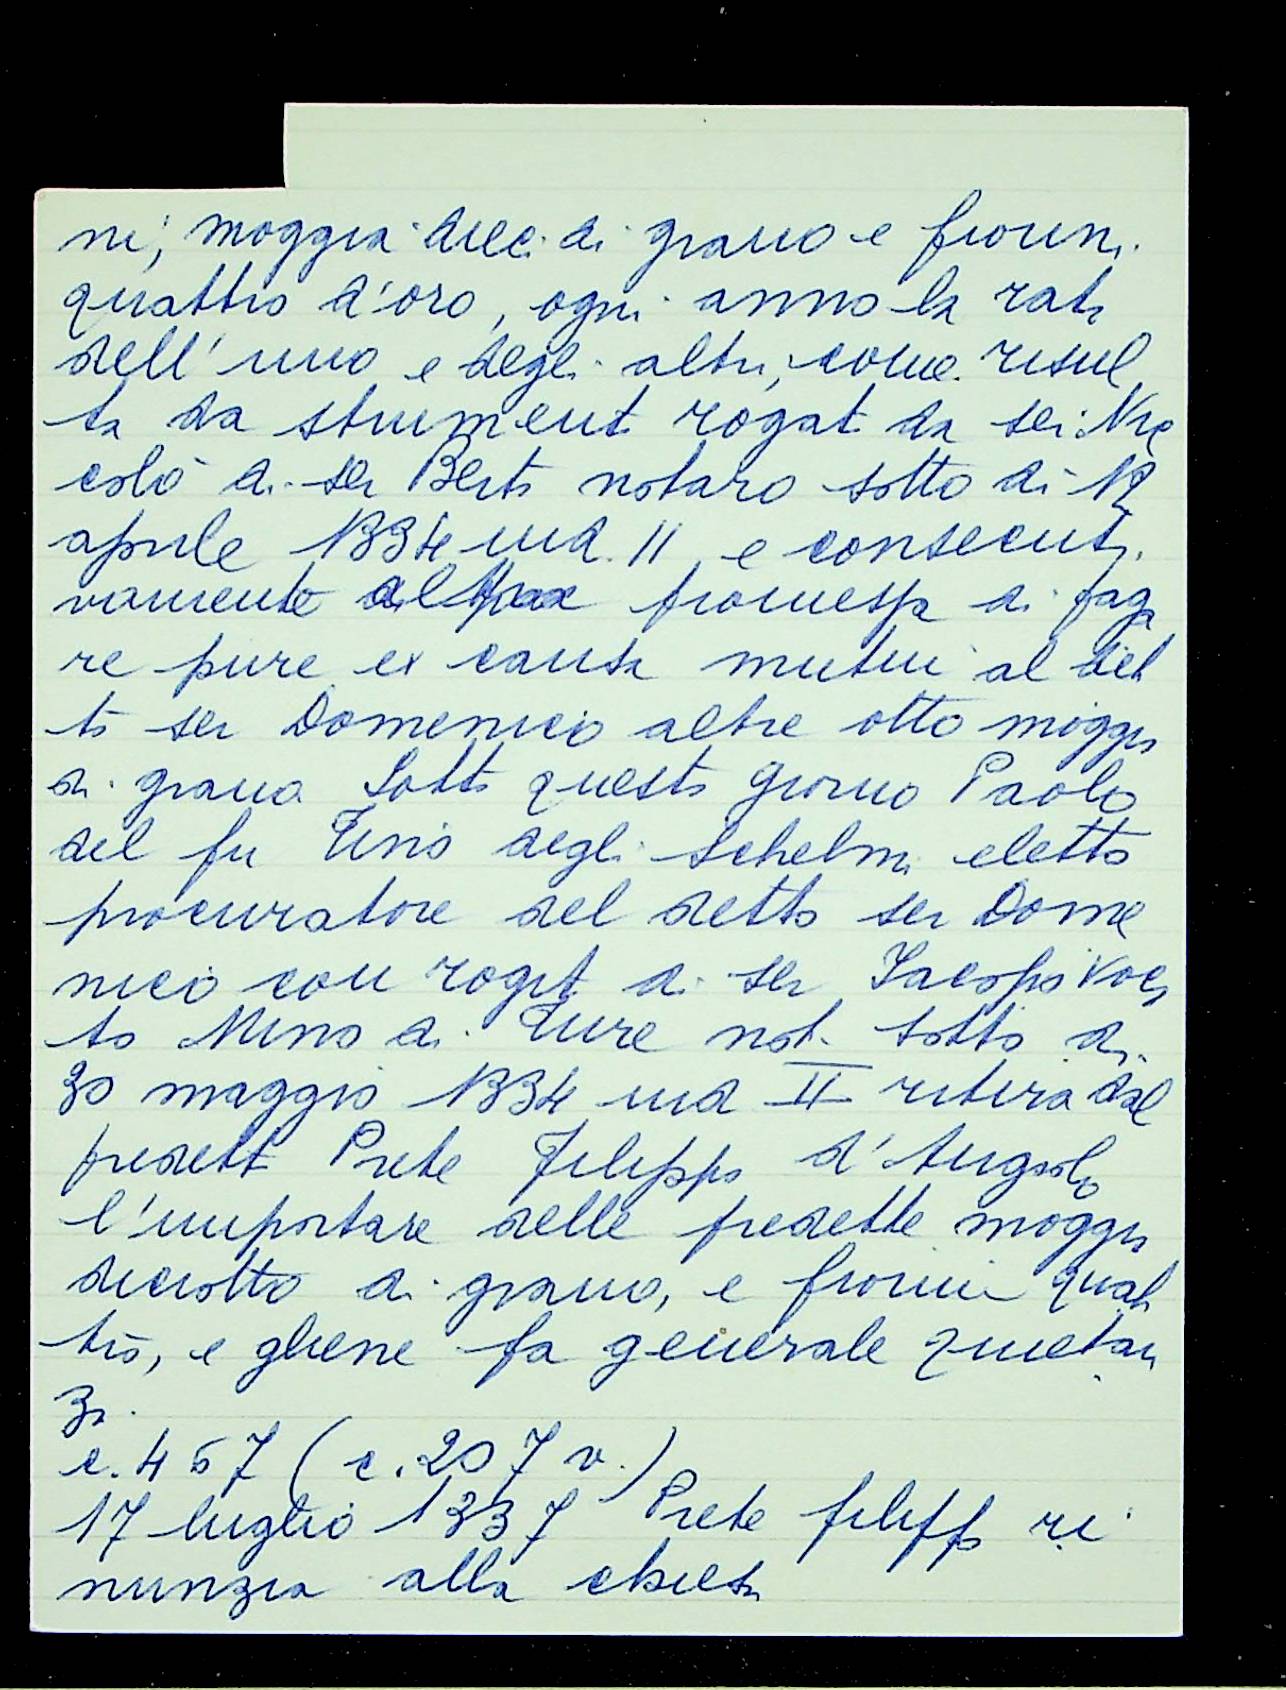 ni, moggia dieci di grano e fiorini
quattro d'oro, ogni anno la rata
dell'uno e degli altri, come risul
ta da strumenti rogati da ser Nic
colò di ser Berto notaro sotto dì 12
aprile 1334 ind. II e consecuti
vamente promessa di paga
re pure ex causa mutui al det
to ser Domenico altre otto moggia
di grano. Sotto questo giorno Paolo
del fu Tino degli Schelmi eletto
procuratore del detto ser Dome
nico con rogito di ser Iacopo voca
to Mino di Ture not. sotto dì
30 maggio 1334 ind II ritira dal
predetto Prete Filippo d'Angiolo
l'importare delle predette moggia
diciotto di grano, e fiorini quat
tro, e gliene fa generale quietan
za.
c. 457 (c. 207 v.)
17 luglio 1337 Prete Filippo ri
nunzia alla chiesa